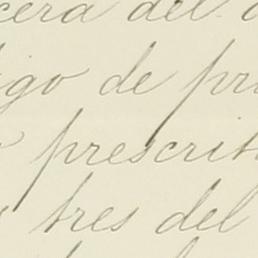 cera del
go de pr
prescrit
tres del